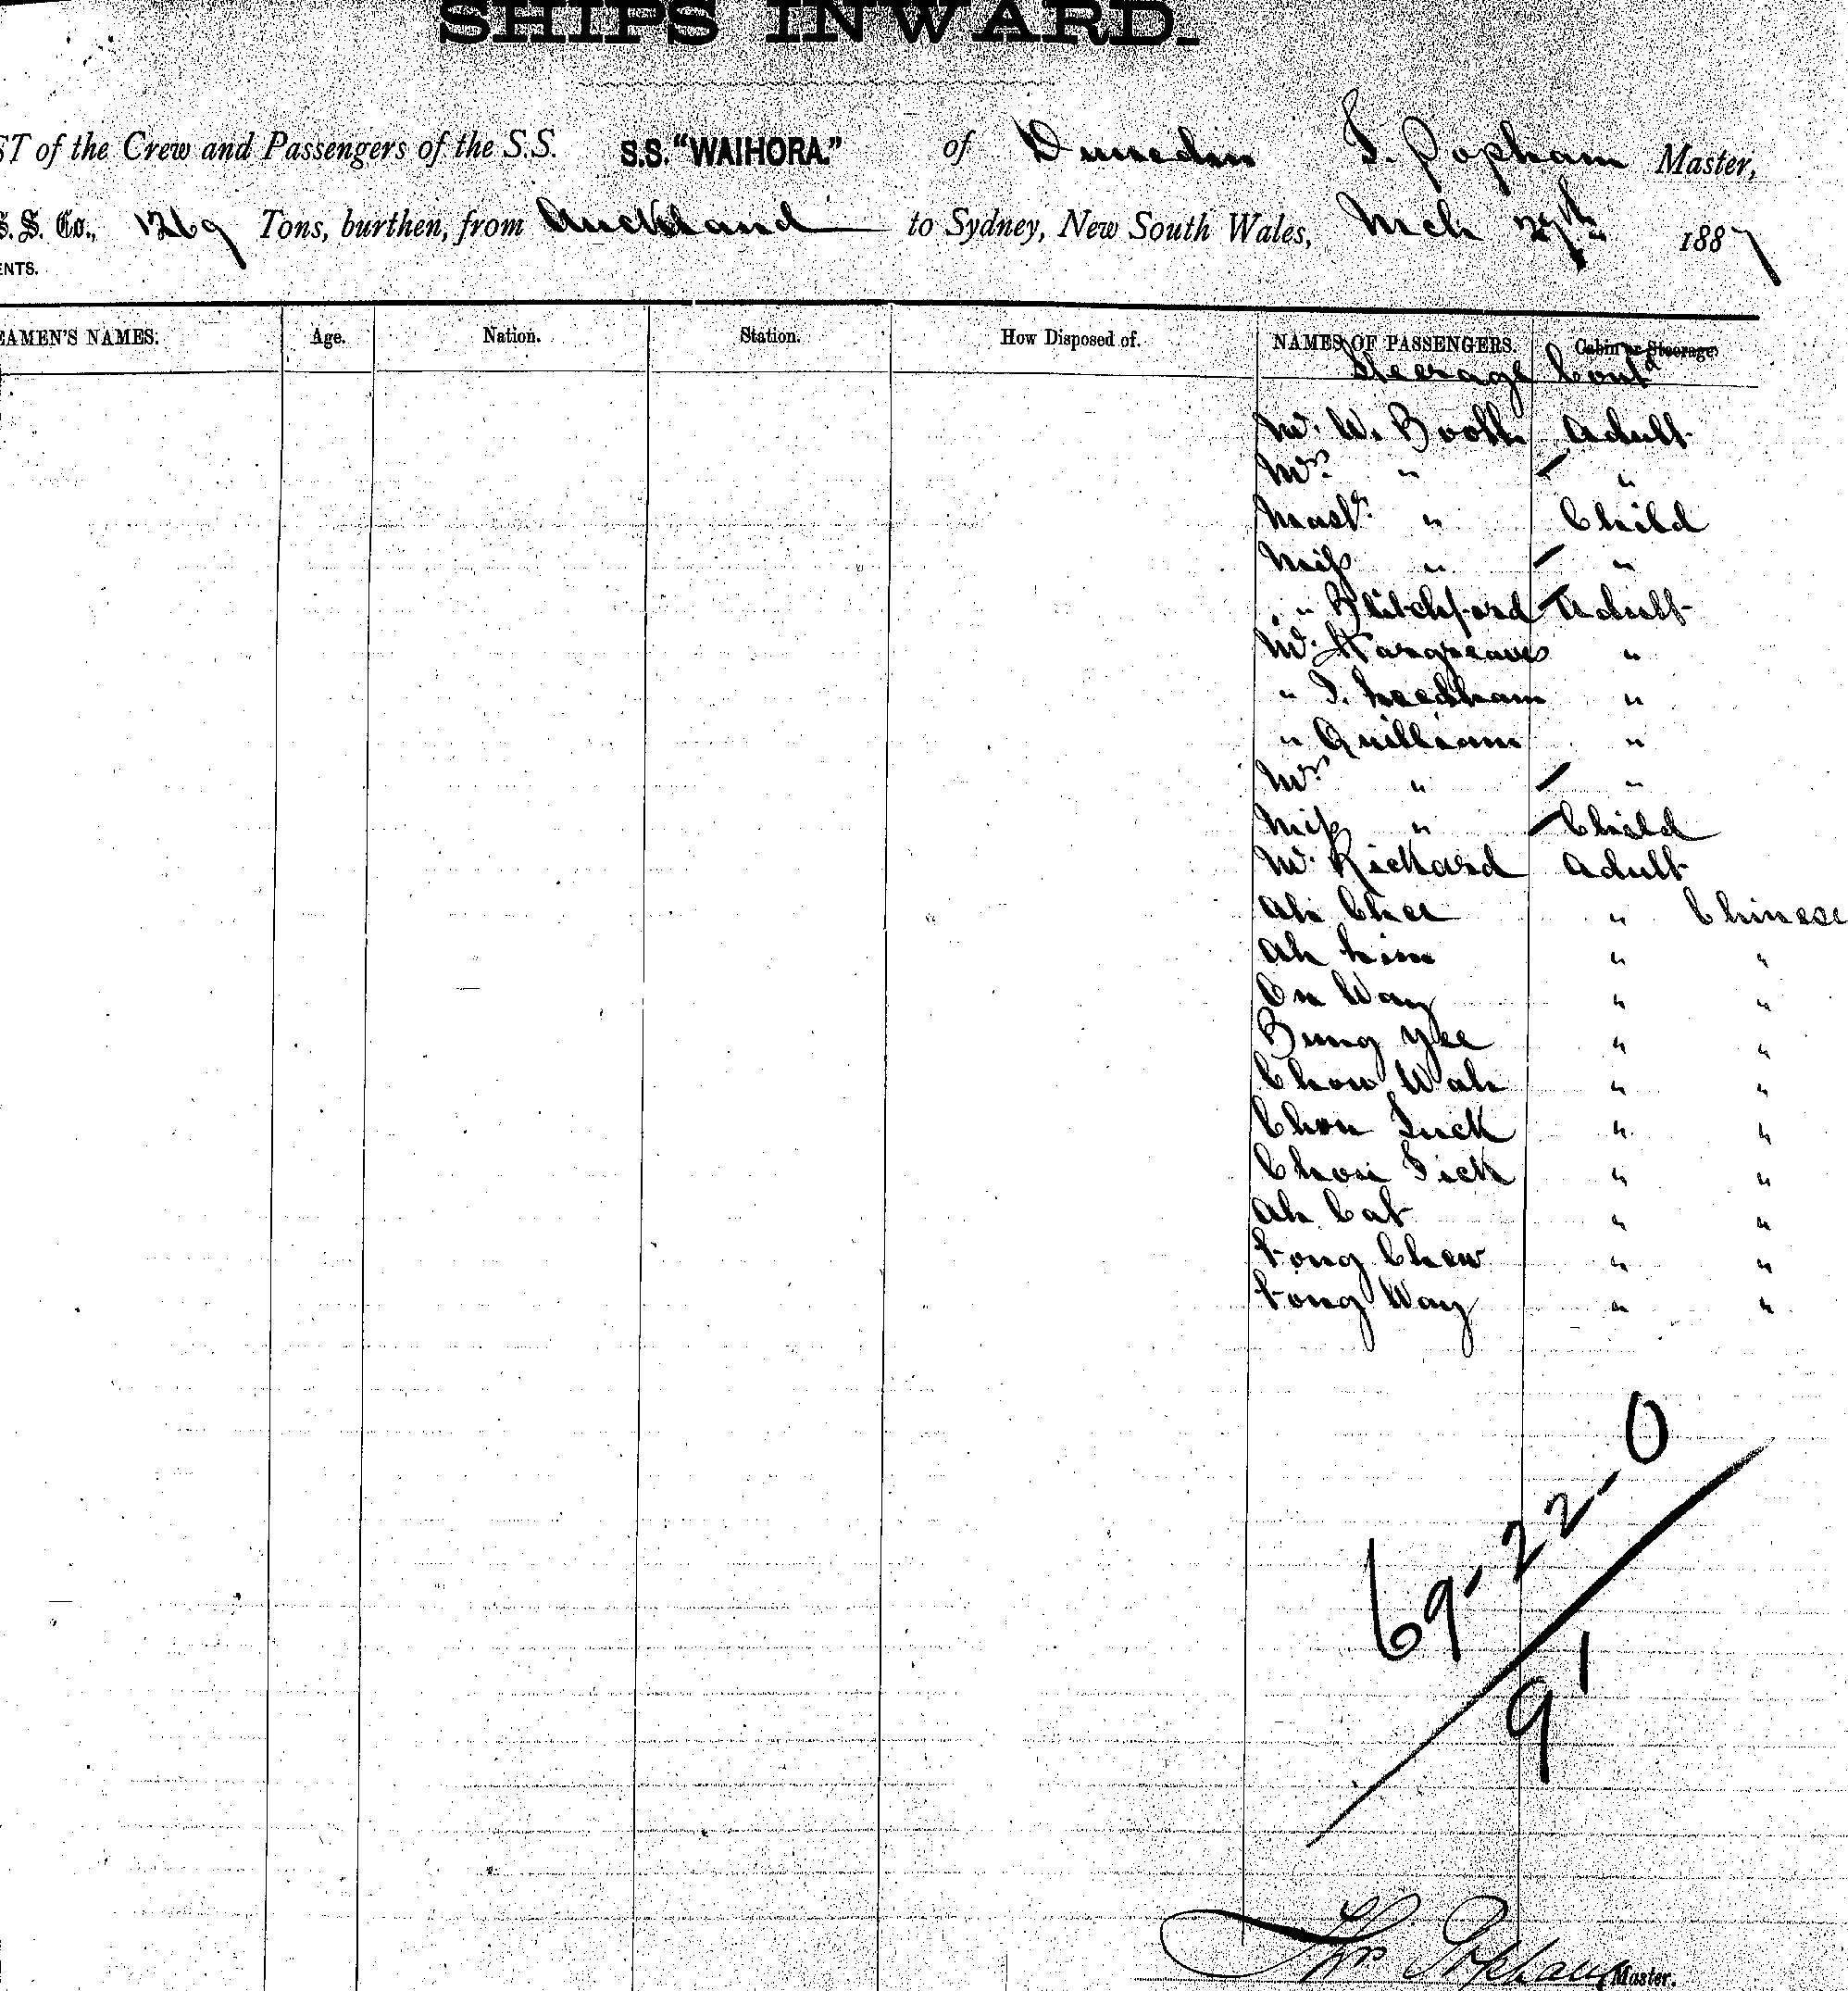 SHIPS INWARD.
ST of the Crew and Passengers of the S.S. S.S. "WAIHORA." of Dunedin T. Popham Master,
S. S. Co., 1269 Tons, burthen, from Auckland to Sydney, New South Wales, Mch 27th 1887
ENTS.
EAMEN'S NAMES. Age. Nation. Station. How Disposed of. NAMES OF PASSENGERS. Cabin or Steerage.
Steerage Contd
Mr. W. Booth Adult
Mrs. " "
Mastr. " Child
Miss " "
" Blitchford Adult
Mr. Hargreaves "
" T. Needham "
" Quilliam "
Mrs " "
Miss " Child
Mr. Rickard Adult
Ah Chee " Chinese
Ah Lim " "
On Way " "
Bung Yee " "
Chow Wah " "
Chon Luck " "
Choi Tick " "
Ah Cat " "
Fong Chew " "
Fong Way " "
69 - 22 - 0
91
Thos Popham Master.